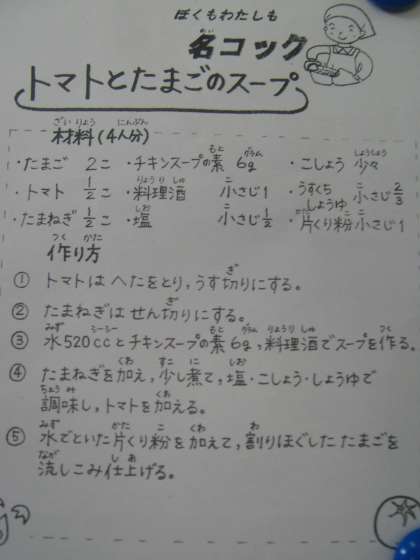 ぼくもわたしも
名コック
トマトとたまごのスープ
材料(4人分)
・たまご 2こ ・チキンスープの素 6g ・こしょう 少々
・トマト 1/2こ ・料理酒 小さじ1 ・うすくちしょうゆ 小さじ2/3
・たまねぎ 1/2こ ・塩 小さじ1/2 ・片くり粉 小さじ1
作り方
① トマトは へたをとり、うす切りにする。
② たまねぎは せん切りにする。
③ 水520ccとチキンスープの素6g,料理酒でスープを作る。
④ たまねぎを加え,少し煮て,塩・こしょう・しょうゆで
調味し,トマトを加える。
⑤ 水でといた片くり粉を加えて,割りほぐした たまごを
流しこみ仕上げる。